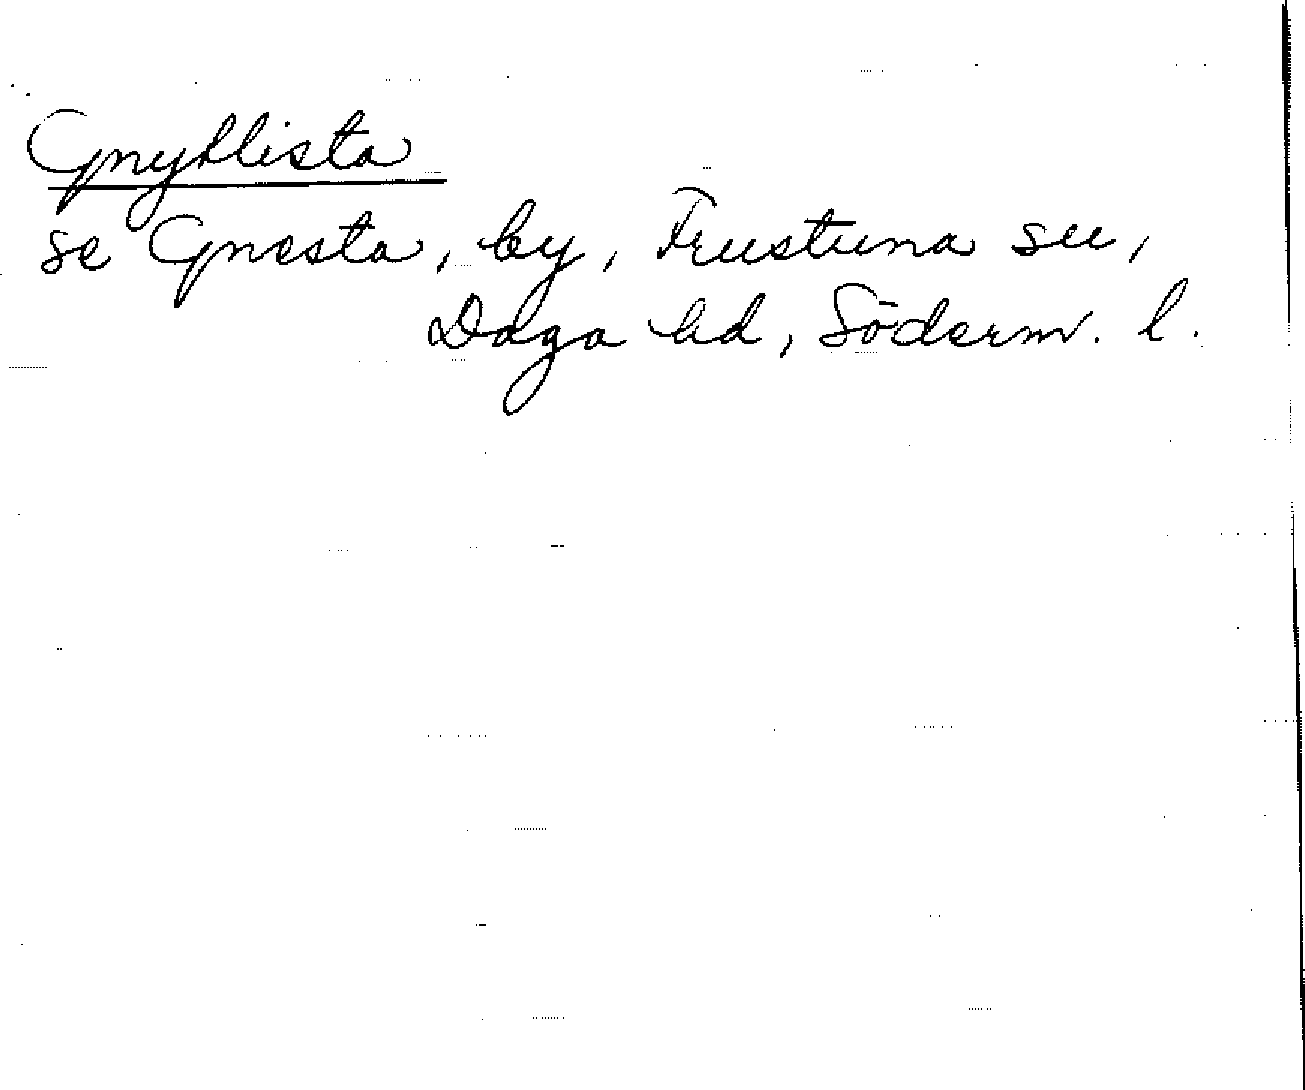 Gnyklista
se Gnesta, by, Frustuna sn,
Daga hd, Söderm. l.